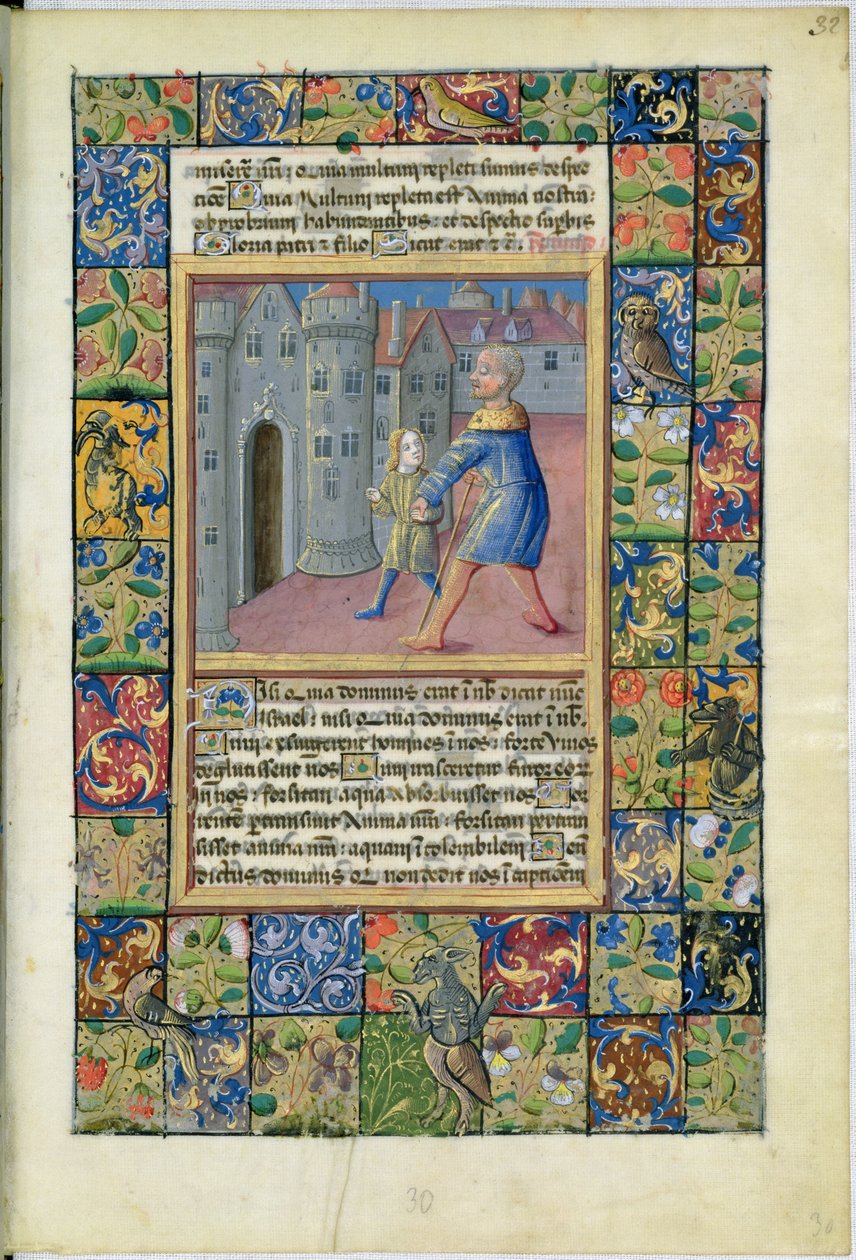 32
misere nri: Quia multum repleti sumus despe
ctioe Quia Multum repleta est Anima nostra:
obprobrium habundantibus: et despectio superbis
Gloria patri & filio Sicut erat & c.
Nisi Quia dominus erat i nob dicat nunc
Israel: nisi Quia dominus erat i nob.
Cum exsurgerent homines i nos: forte Vivos
deglutissent nos Cum irasceretur furor eor
in nos: forsitan aqua Absorbuisset nos Tor
rentem pertransivit Anima nra: forsitan pertran
sisset anima nra: aquam itolerabilem: Bene
dictus dominus Qui non dedit nos i captionem
30
30